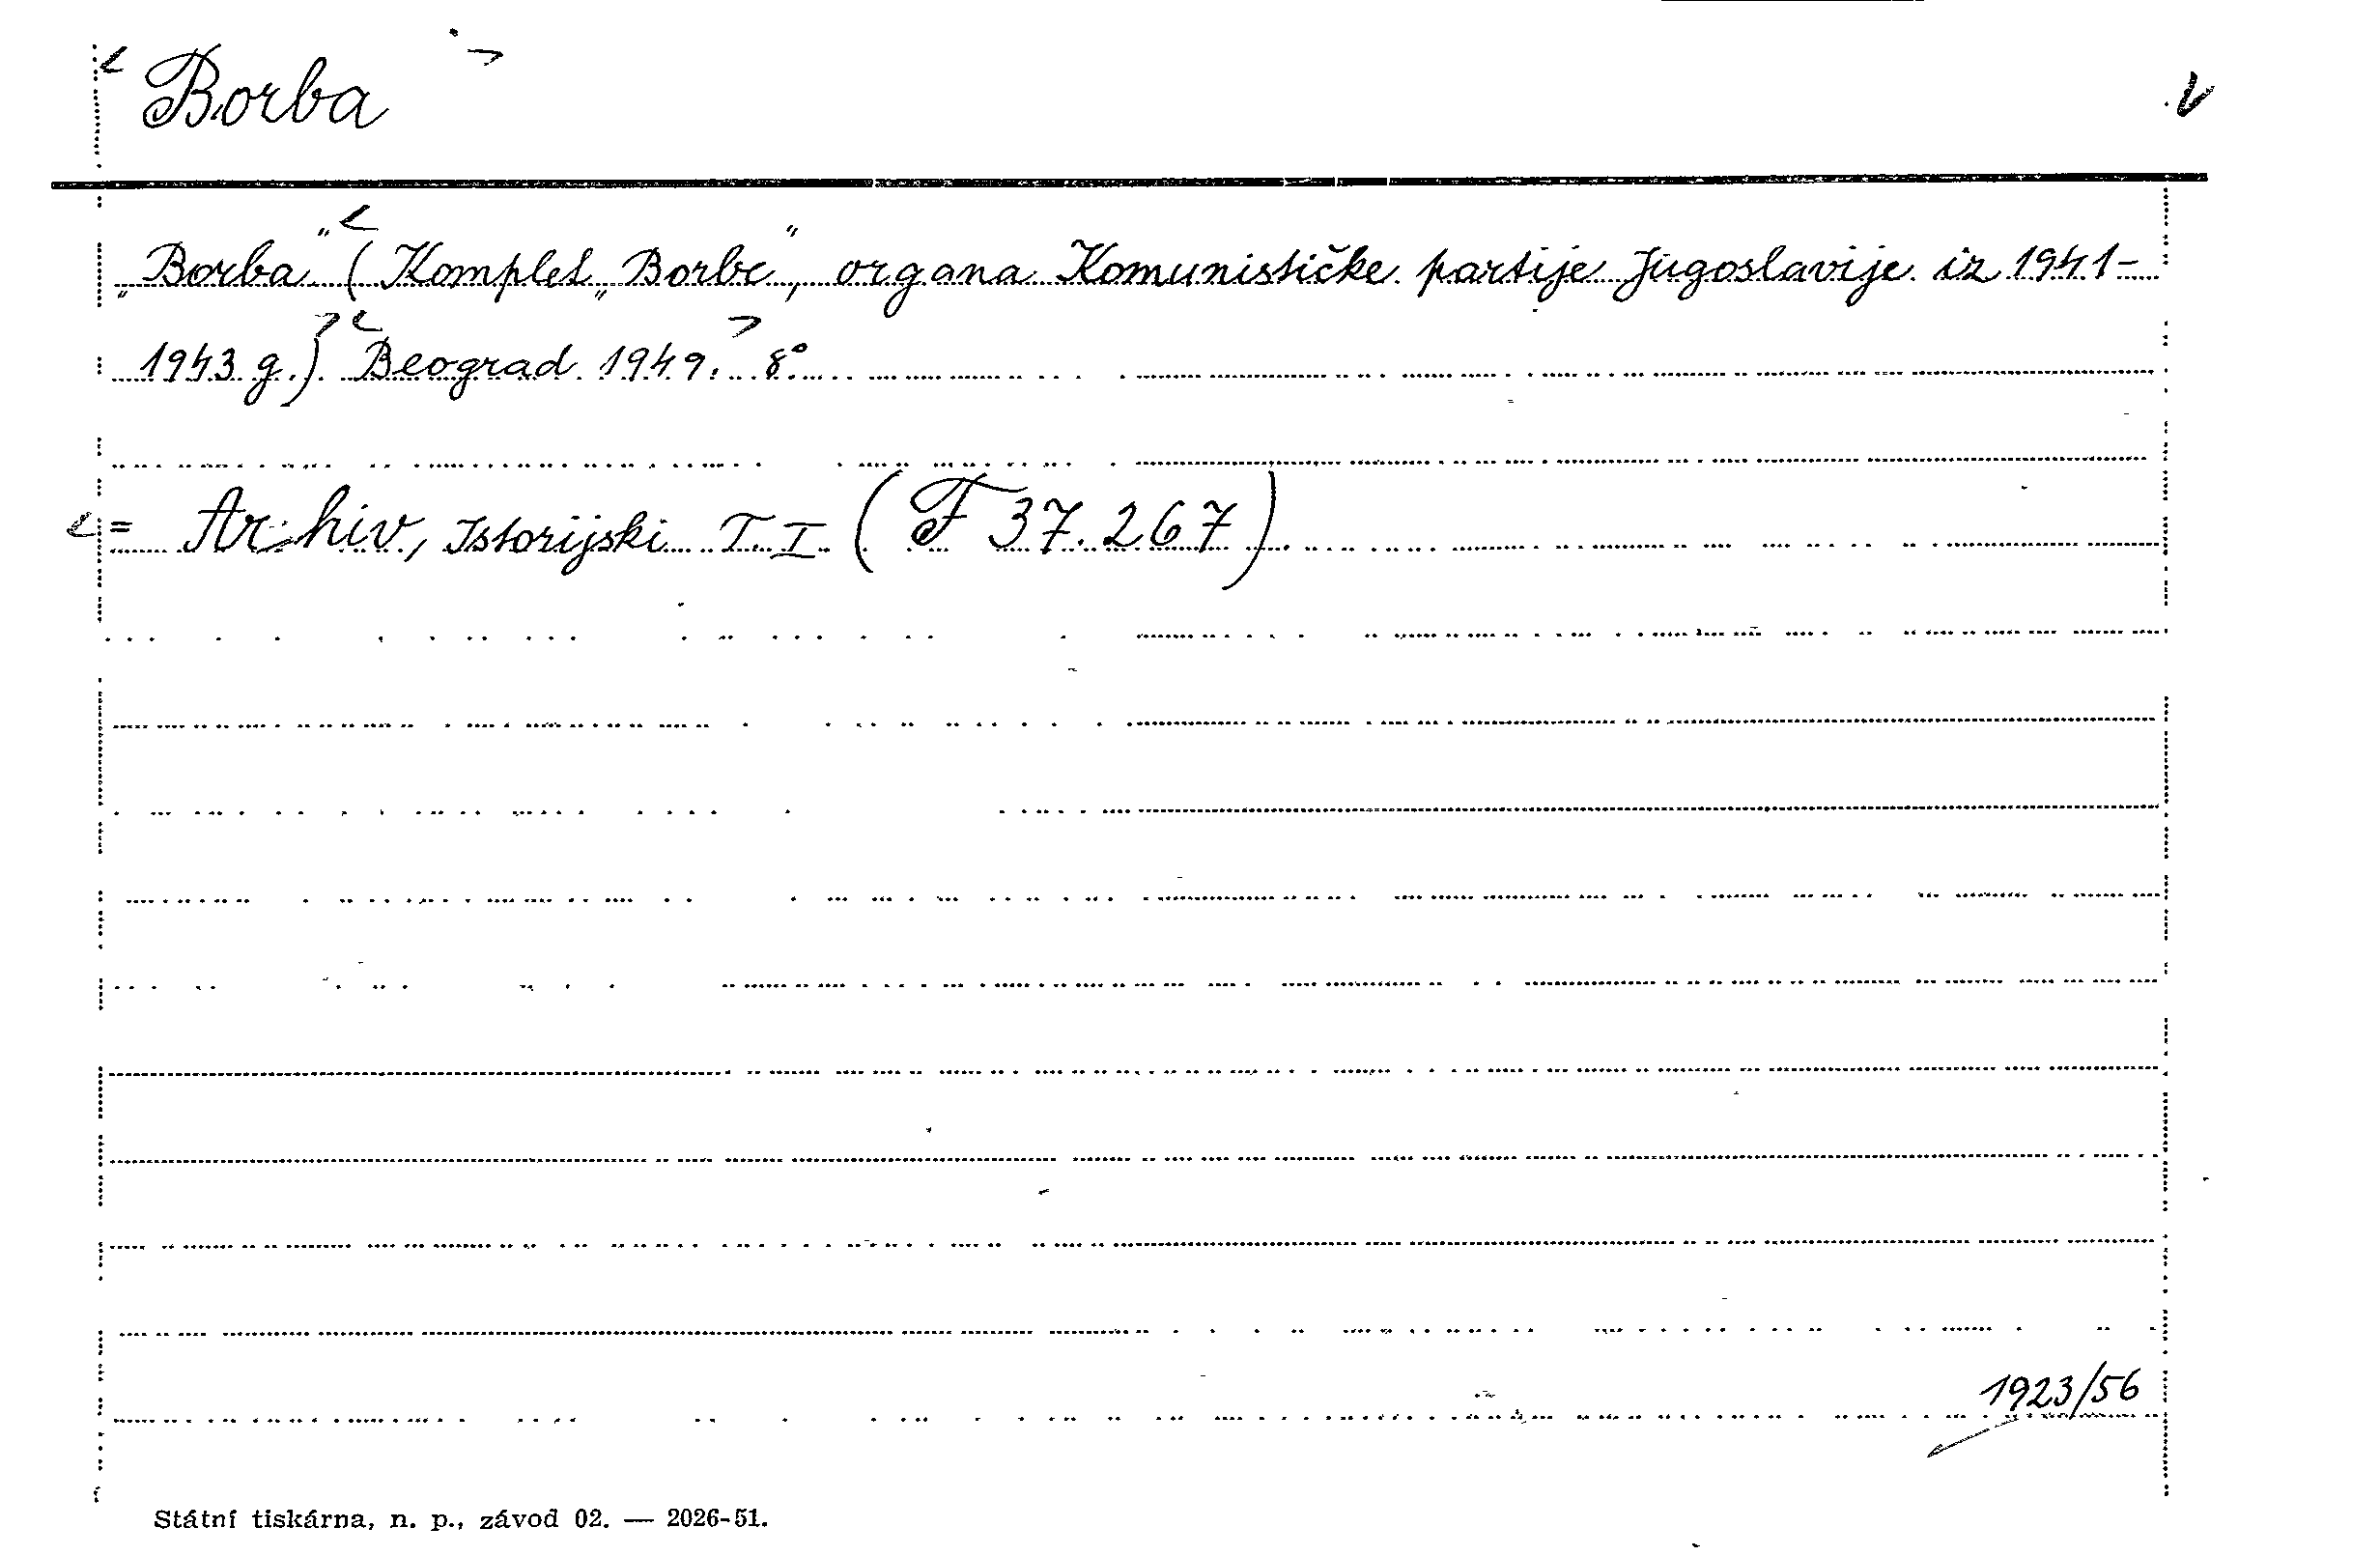 Borba
„Borba“ (Komplet „Borbe“, organa Komunističke partije Jugoslavije iz 1941-
1943 g.) Beograd 1949. 8°
= Archiv, Istorijski T. I (F 37.267)
1923/56
Státní tiskárna, n. p., závod 02. — 2026-51.